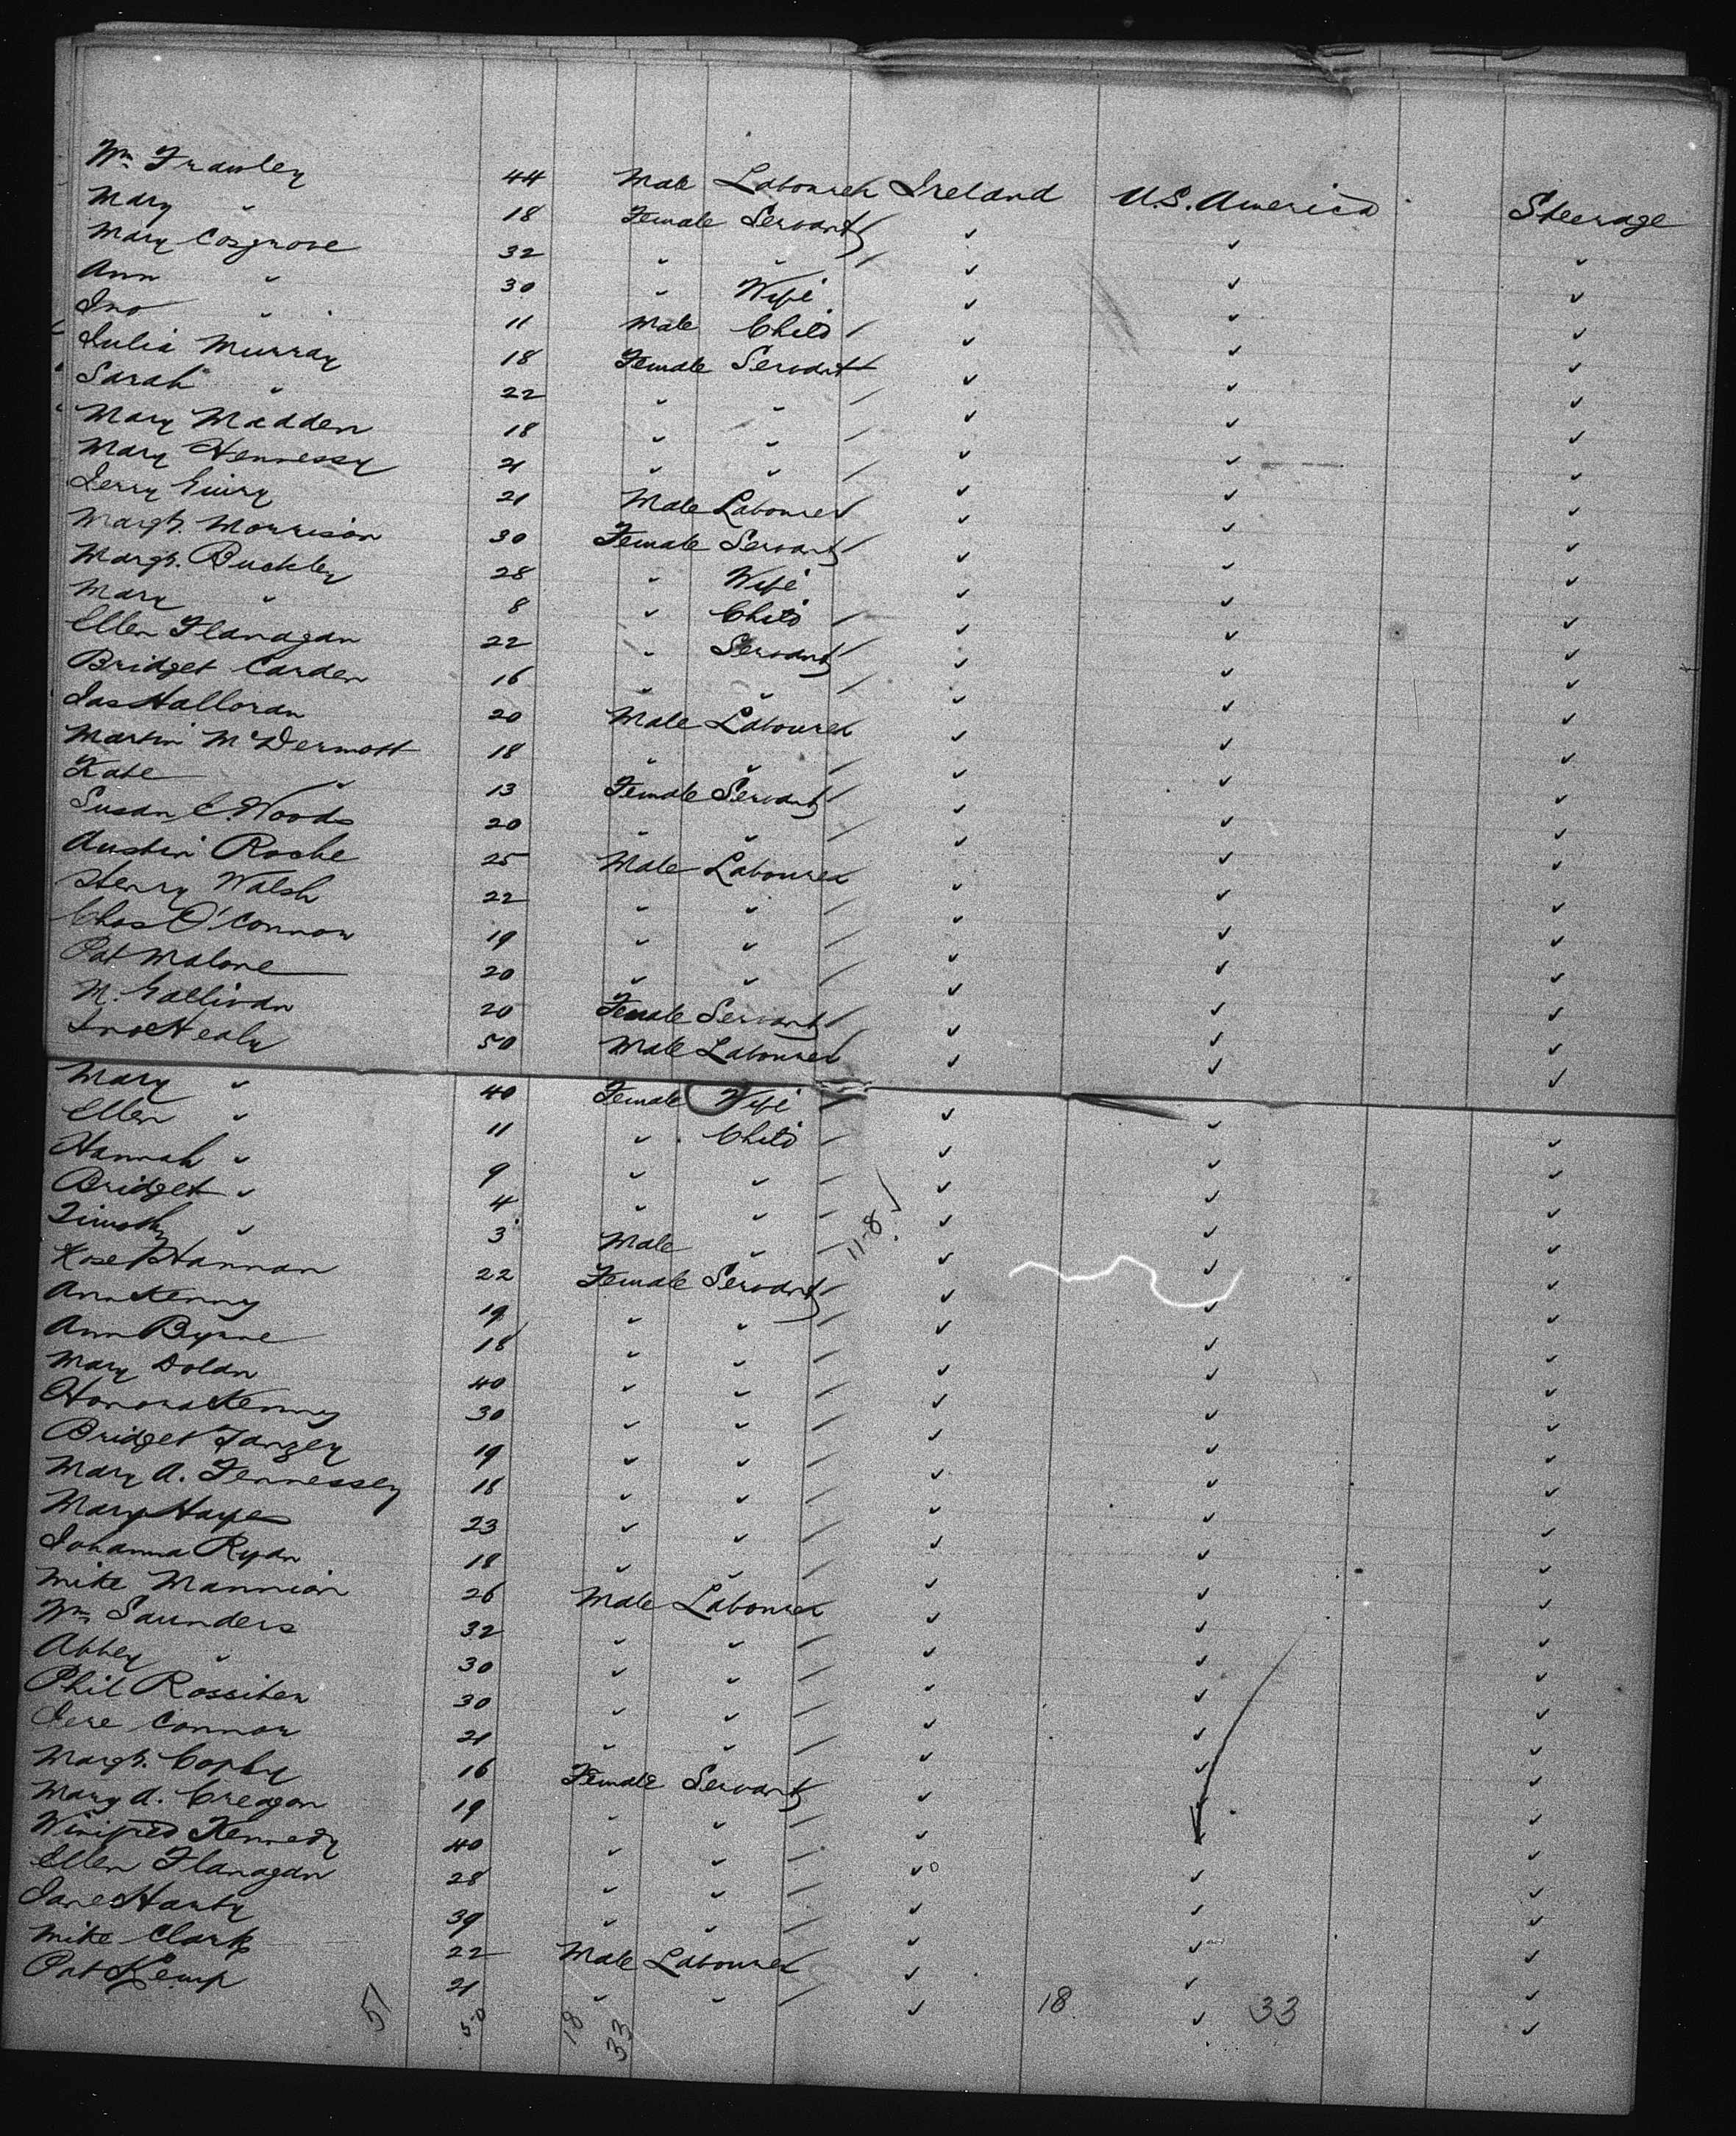 Wm Frawley 44 Male Labourer Ireland U.S. America Steerage
Mary " 18 Female Servant " " "
Mary Cosgrove 32 " " " " "
Ann " 30 " Wife " " "
Jno " 11 Male Child " " "
Julia Murray 18 Female Servant " " "
Sarah " 22 " " " " "
Mary Madden 18 " " " " "
Mary Hennessy 21 " " " " "
Jerry 21 Male Labourer " " "
Margt. Morrison 30 Female Servant " " "
Margt. Buckley 28 " Wife " " "
Mary " 8 " Child " " "
Ellen Flanagan 22 " Servant " " "
Bridget Carden 16 " " " " "
Jas Halloran 20 Male Labourer " " "
Martin McDermott 18 " " " " "
Kate " 13 Female Servant " " "
Susan E. Woods 20 " " " " "
Austin Roche 25 Male Labourer " " "
Henry Walsh 22 " " " " "
Chas O'Connor 19 " " " " "
Pat Malone 20 " " " " "
N. Gallivan 20 Female Servant " " "
Jno Healy 50 Male Labourer " " "
Mary " 40 Female Wife " " "
Ellen " 11 " Child " " "
Hannah " 9 " " " " "
Bridget " 4 " " " " "
Timothy " 3 Male " 11-8 " " "
Rose Hannan 22 Female Servant " " "
Ann Kenny 19 " " " " "
Ann Byrne 18 " " " " "
Mary Dolan 40 " " " " "
Honora Kenny 30 " " " " "
Bridget Tanzey 19 " " " " "
Mary A. Fennessey 18 " " " " "
Mary Hayes 23 " " " " "
Johanna Ryan 18 " " " " "
Mike Mannion 26 Male Labourer " " "
Wm Saunders 32 " " " " "
Abbey " 30 " " " " "
Phil Rossiter 30 " " " " "
Jere Connor 21 " " " " "
Margt. 16 Female Servant " " "
Mary A. Creagan 19 " " " " "
Winifred Kennedy 40 " " " " "
Ellen Flanagan 28 " " " " "
Jane Hanty 39 " " " " "
Mike Clark 22 Male Labourer " " "
Pat Kemp 21 " " " " "
51 50 18 33 18 33